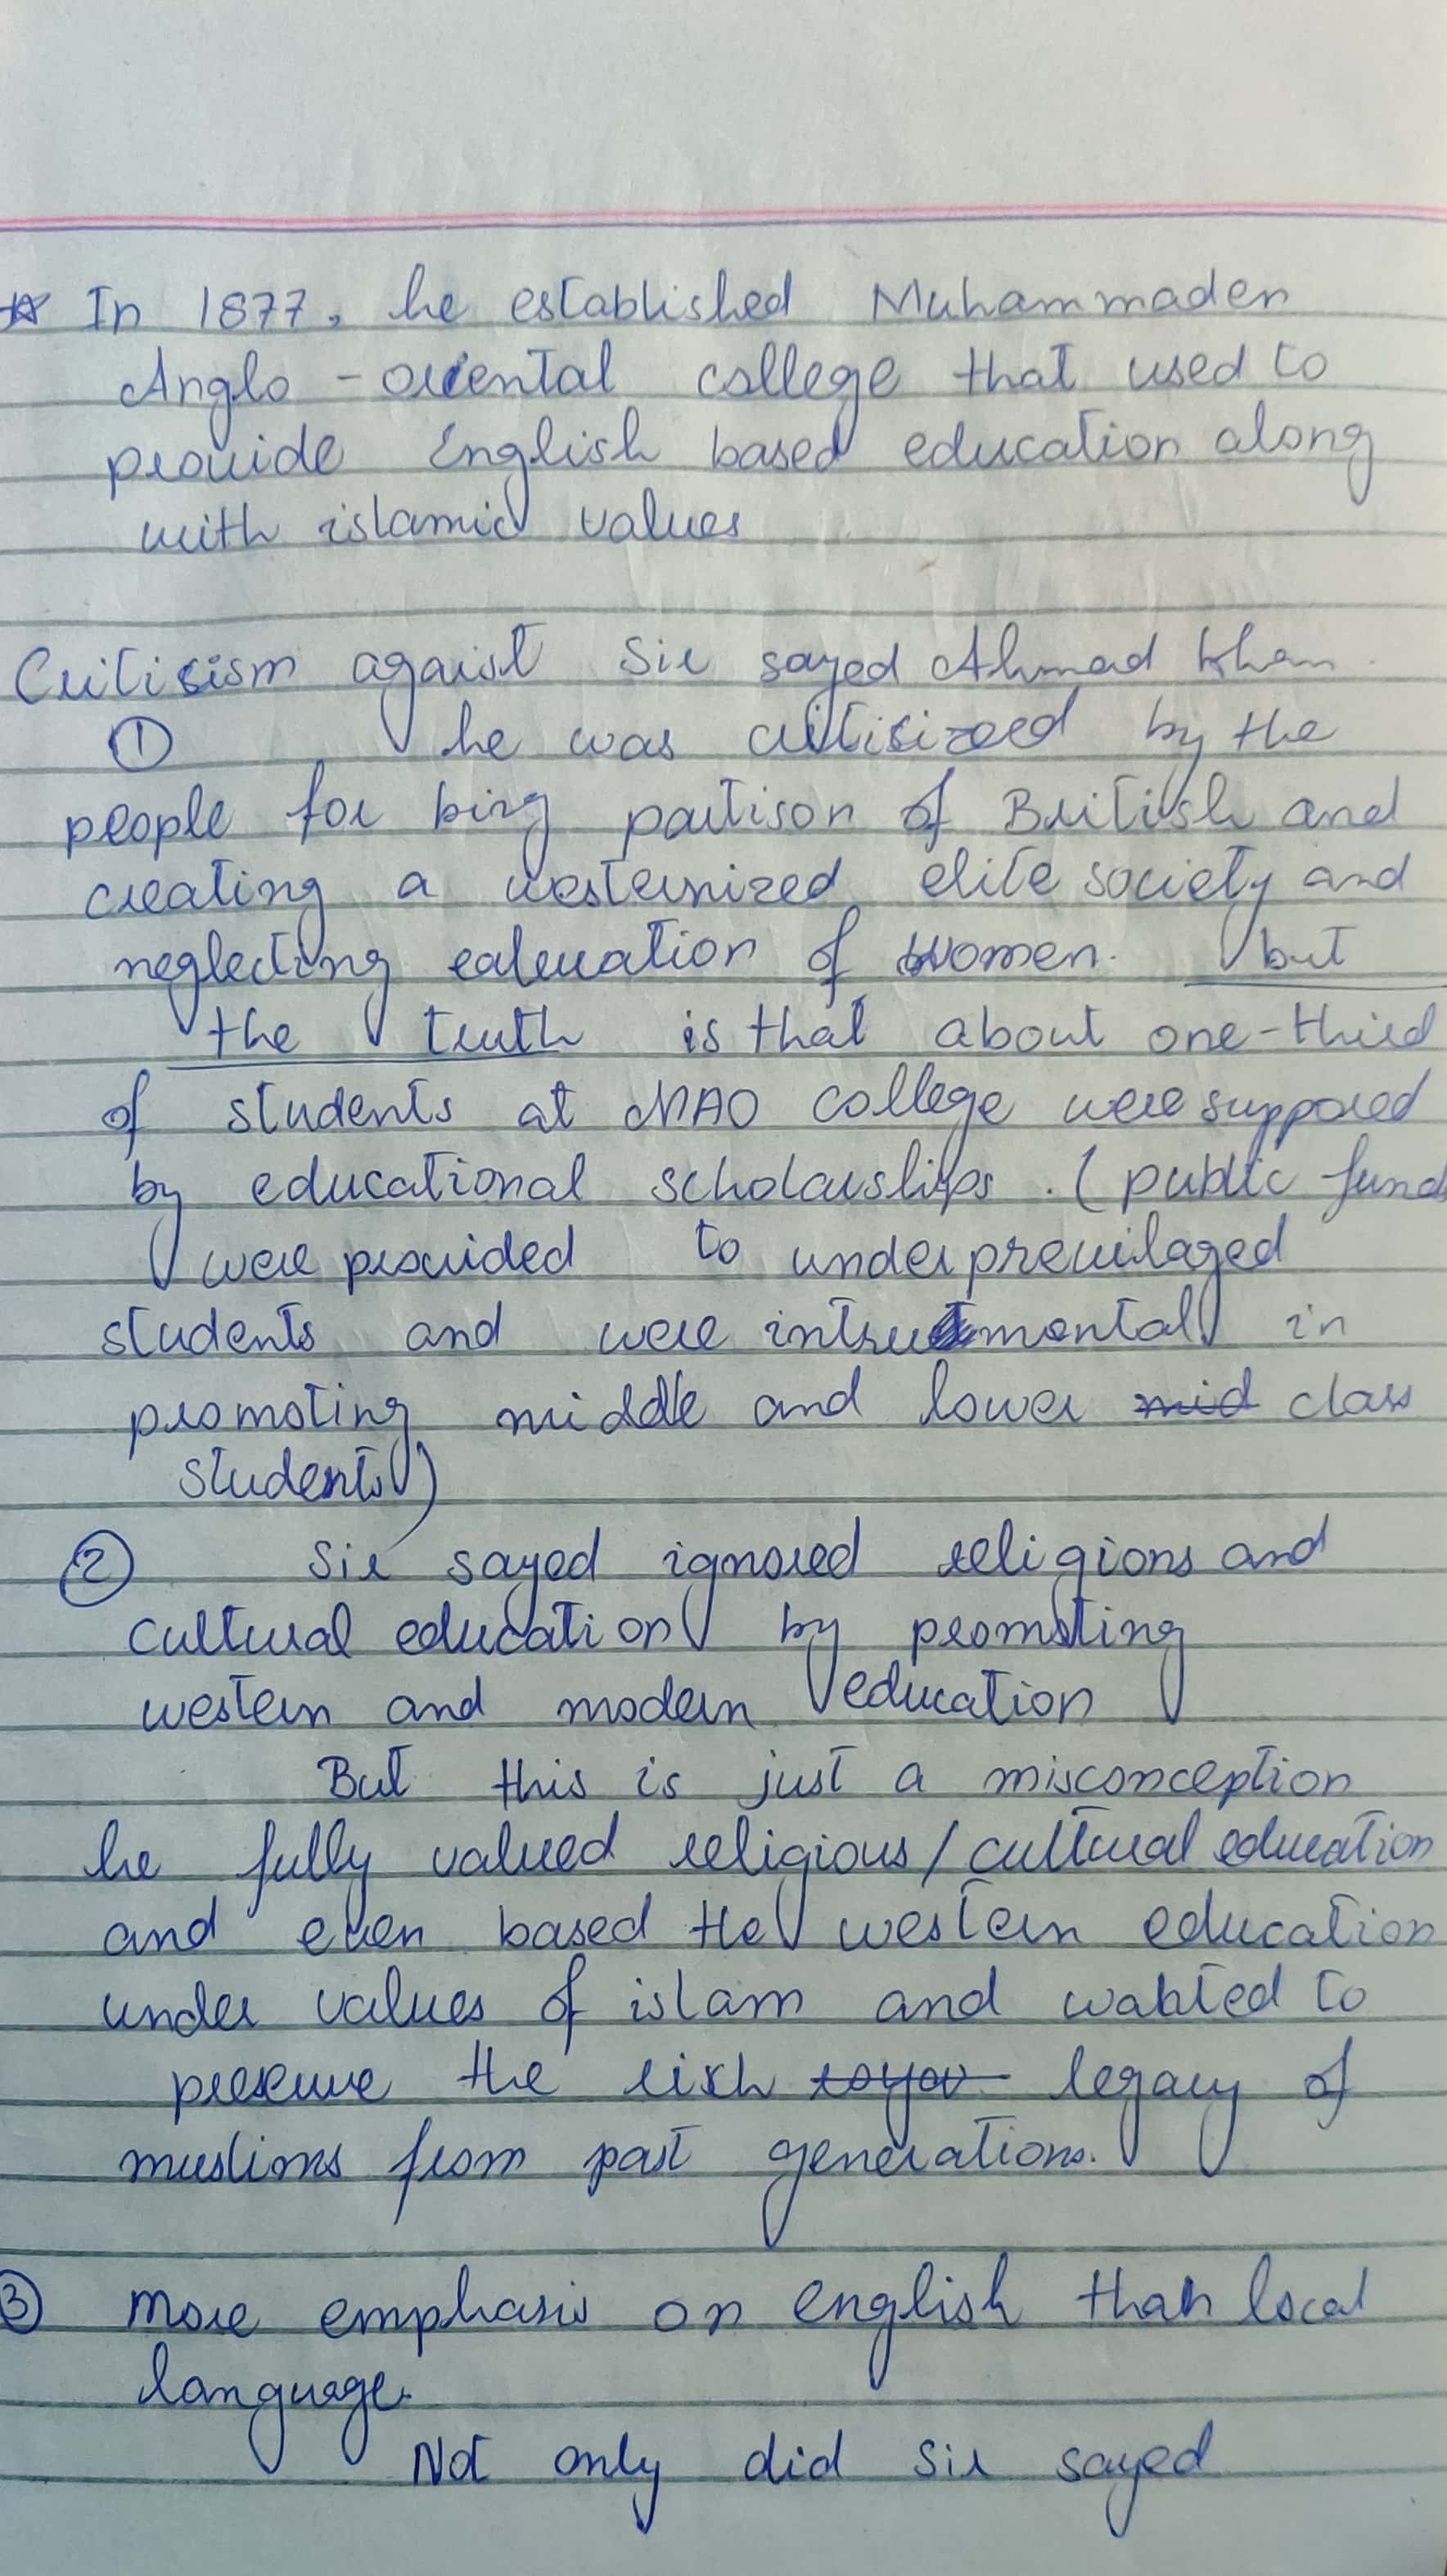 ☆ In 1877, he established Muhammaden
Anglo - oriental college that used to
provide English based education along
with islamic values
Critisism agaist Sir sayed Ahmad Khan.
① he was critisized by the
people for bing partison of British and
creating a westernized elite society and
neglecting ealucation of women. but
the truth is that about one-third
of students at MAO college were suppored
by educational scholarships. (public fund
were provided to underprevilaged
students and were intrumental in
promoting middle and lower mid class
students)
② Sir sayed ignored religions and
cultural education by promoting
western and modern education
But this is just a misconception
he fully valued religious/cultural education
and even based the western education
under values of islam and wabted to
preserve the rich legacy of
muslims from past generations.
③ more emphasis on english than local
language.
Not only did Sir sayed